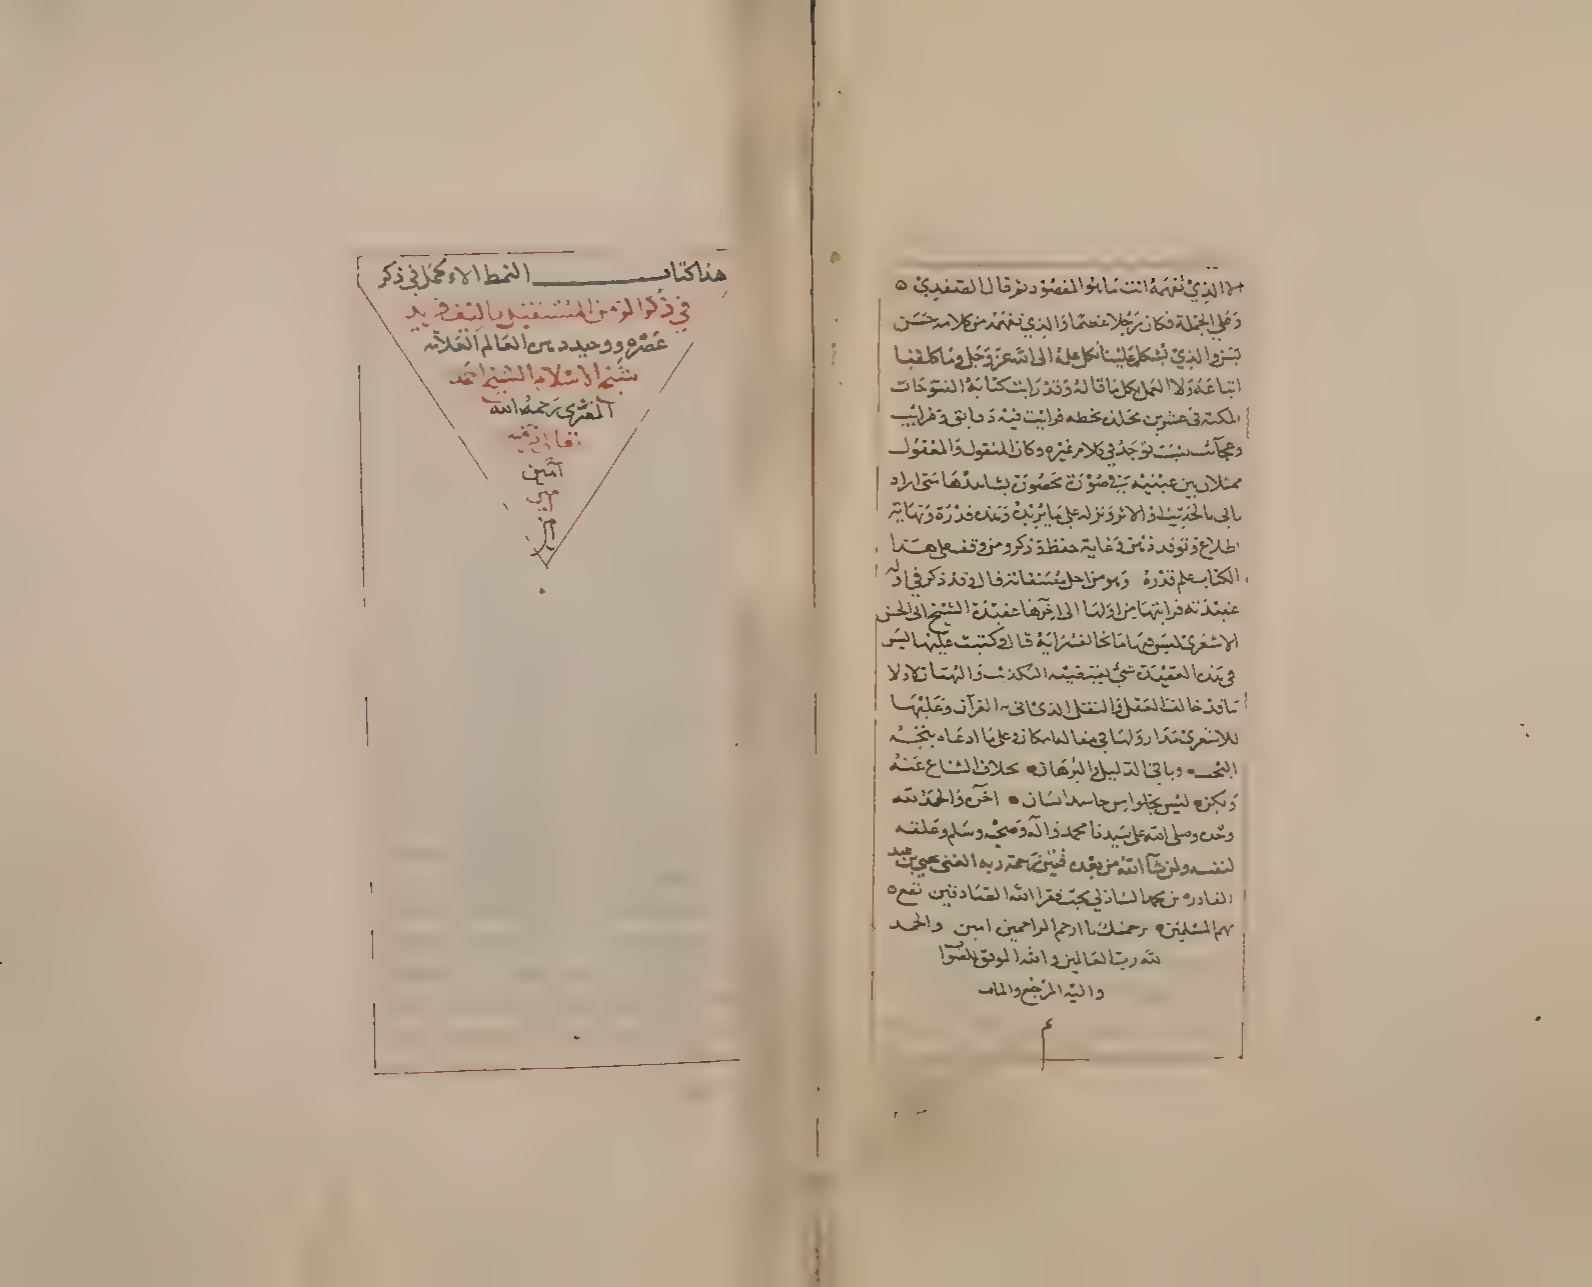 الا الذي نفهمه انت ما هو المقصود ثم قال الصفدي
وعلى الجملة فكان رجلا عظيما والذي نفهمه من كلامه حسن
نبني والذي يشكل علينا نكل علمه الى الله عز وجل وما كلفنا
اتباعه ولا العمل بكل ما قاله وقد رايت كتابه الفتوحات
المكية في عشرين مجلد بخطه فرايت فيه دقائق وغرائب
وعجائب ليست توجد في كلام غيره وكان المنقول والمعقول
ممثلان بين عينيه في صورة محصورة يشاهدها متى اراد
اتى بالحديث او الاثر ونزله على ما يريد وهذه قدرة ونهاية
اطلاع وتوقد ذهن وغاية حفظ وذكر ومن وقف على هذا
الكتاب علم قدره وهو من اجل مصنفاته قال وقد ذكر في اوله
عقيدته فرايتها من اولها الى اخرها عقيدة الشيخ ابي الحسن
الاشعري ليس فيها ما يخالف رايه قال وكتبت عليها ليس
في هذه العقيدة شي يقتضيه التكذيب والبهتان لا ولا
ما قد خالف العقل والنقل الذي اتى به القرآن وعليها
للاشعري مدار ولها في مقاله امكان وعلى ما ادعاه يتجه
البحث وياتي الدليل والبرهان بخلاف الشناع عنه
ولكن ليس يخلوا من حاسد انسان اخره والحمد لله
وحده وصلى الله على سيدنا محمد واله وصحبه وسلم وعلقه
لنفسه ولمن شآ الله من بعده فقير رحمة ربه الغني يحيى بن عبد
القادر بن محمد الشاذلي محب فقرا الله الصادقين نفع
بهم المسلمين برحمتك يا ارحم الراحمين امين والحمد
لله رب العالمين والله الموفق للصواب
واليه المرجع والماب
م
هذا كتاب النمط الاكمل في ذكر
في ذكر الزمن المستقبل تاليف فريد
عصره ووحيد دهره العالم العلامه
شيخ الاسلام الشيخ احمد
المقري رحمه الله
تعالى
آمين